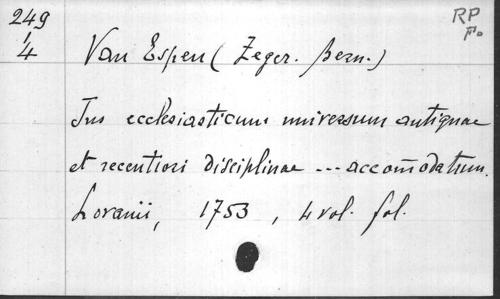 249
4
RP
Fo.
Van Espen ( Zeger. Bern. )
Jus ecclesiasticum universum antiquae
et recentiori disciplinae --- accom̄odatum.
Lovanii, 1753, 4 vol. fol.